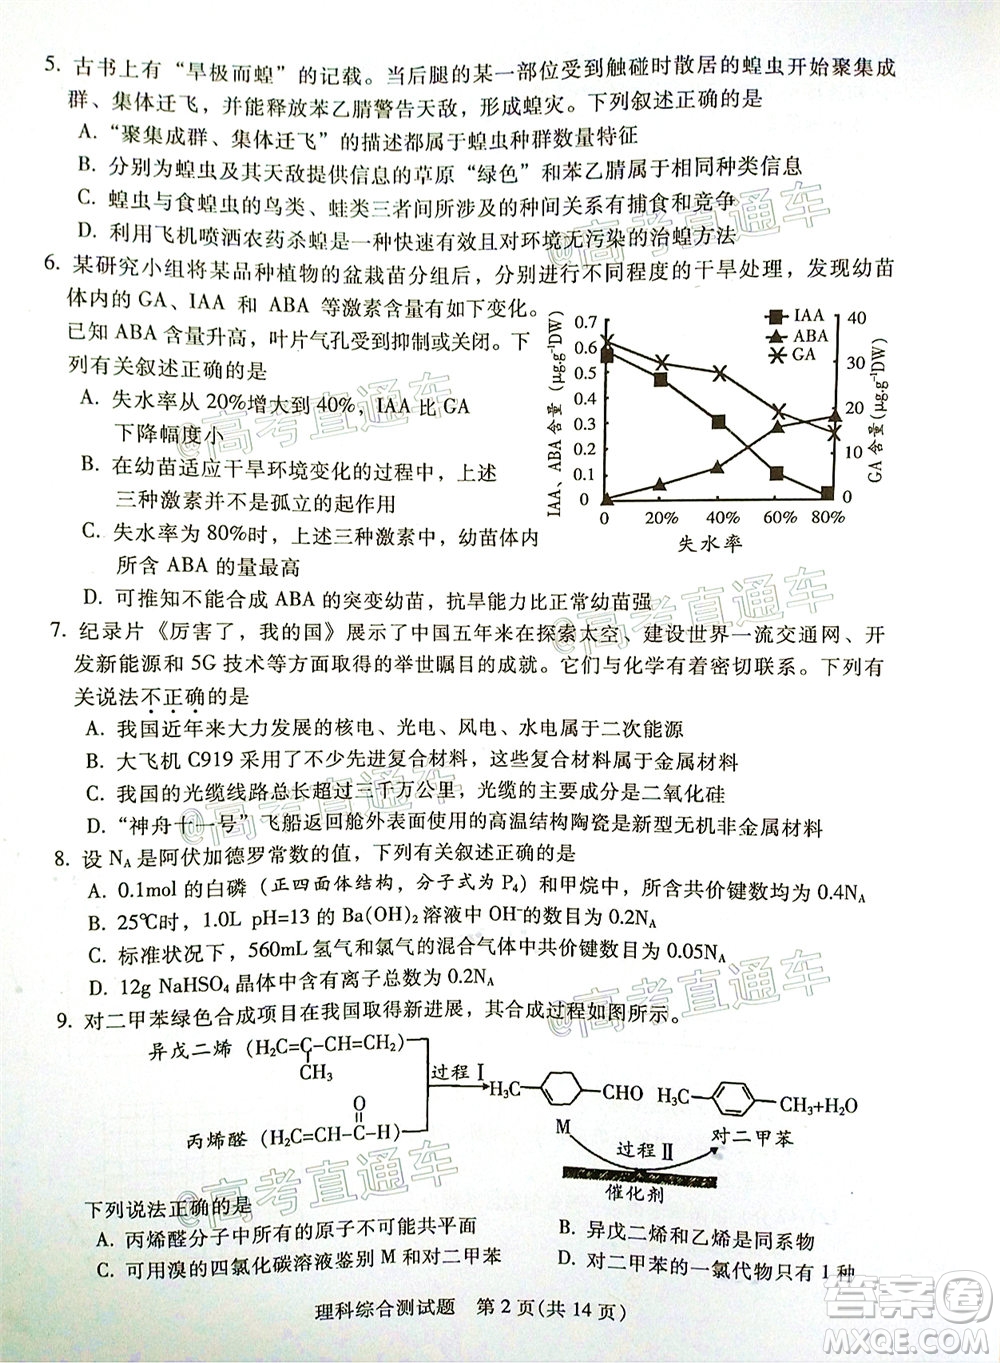 5. 古书上有“旱极而蝗”的记载。当后腿的某一部位受到触碰时散居的蝗虫开始聚集成
群、集体迁飞，并能释放苯乙腈警告天敌，形成蝗灾。下列叙述正确的是
A. “聚集成群、集体迁飞”的描述都属于蝗虫种群数量特征
B. 分别为蝗虫及其天敌提供信息的草原“绿色”和苯乙腈属于相同种类信息
C. 蝗虫与食蝗虫的鸟类、蛙类三者间所涉及的种间关系有捕食和竞争
D. 利用飞机喷洒农药杀蝗是一种快速有效且对环境无污染的治蝗方法
6. 某研究小组将某品种植物的盆栽苗分组后，分别进行不同程度的干旱处理，发现幼苗
体内的 GA、IAA 和 ABA 等激素含量有如下变化。
已知 ABA 含量升高，叶片气孔受到抑制或关闭。下
列有关叙述正确的是
A. 失水率从 20%增大到 40%，IAA 比 GA
下降幅度小
B. 在幼苗适应干旱环境变化的过程中，上述
三种激素并不是孤立的起作用
C. 失水率为 80%时，上述三种激素中，幼苗体内
所含 ABA 的量最高
D. 可推知不能合成 ABA 的突变幼苗，抗旱能力比正常幼苗强
IAA、ABA 含量 (μg.g⁻¹DW)
0.7
0.6
0.5
0.4
0.3
0.2
0.1
0
0 20% 40% 60% 80%
失水率
IAA
ABA
GA
40
30
20
10
0
GA 含量 (μg.g⁻¹DW)
7. 纪录片《厉害了，我的国》展示了中国五年来在探索太空、建设世界一流交通网、开
发新能源和 5G 技术等方面取得的举世瞩目的成就。它们与化学有着密切联系。下列有
关说法不正确的是
A. 我国近年来大力发展的核电、光电、风电、水电属于二次能源
B. 大飞机 C919 采用了不少先进复合材料，这些复合材料属于金属材料
C. 我国的光缆线路总长超过三千万公里，光缆的主要成分是二氧化硅
D. “神舟十一号”飞船返回舱外表面使用的高温结构陶瓷是新型无机非金属材料
8. 设 N_A 是阿伏加德罗常数的值，下列有关叙述正确的是
A. 0.1mol 的白磷（正四面体结构，分子式为 P₄）和甲烷中，所含共价键数均为 0.4N_A
B. 25℃时，1.0L pH=13 的 Ba(OH)₂ 溶液中 OH⁻的数目为 0.2N_A
C. 标准状况下，560mL 氢气和氯气的混合气体中共价键数目为 0.05N_A
D. 12g NaHSO₄ 晶体中含有离子总数为 0.2N_A
9. 对二甲苯绿色合成项目在我国取得新进展，其合成过程如图所示。
异戊二烯 (H₂C=C-CH=CH₂)
CH₃
过程 Ⅰ
H₃C
CHO
H₃C
CH₃+H₂O
O
丙烯醛 (H₂C=CH-C-H)
M
过程 Ⅱ
对二甲苯
催化剂
下列说法正确的是
A. 丙烯醛分子中所有的原子不可能共平面
B. 异戊二烯和乙烯是同系物
C. 可用溴的四氯化碳溶液鉴别 M 和对二甲苯
D. 对二甲苯的一氯代物只有 1 种
理科综合测试题 第 2 页(共 14 页)
@高考直通车
@高考直通车
@高考直通车
@高考直通车
@高考直通车
@高考直通车
@高考直通车
答案卷
MXQE.COM